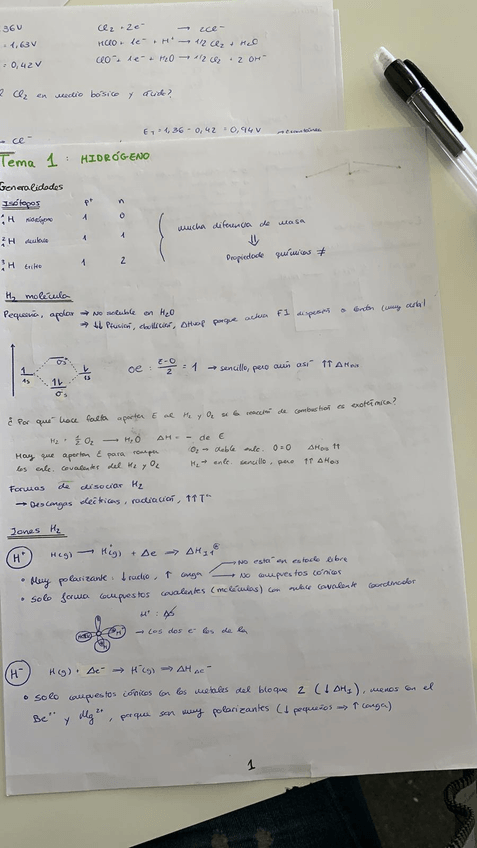 36V Cl₂ + 2e⁻ → 2Cl⁻
= 1,63V HClO + 1e⁻ + H⁺ → 1/2 Cl₂ + H₂O
= 0,42V ClO⁻ + 1e⁻ + H₂O → 1/2 Cl₂ + 2 OH⁻
Cl₂ en medio básico y ácido?
= Cl⁻ E = 1,36 - 0,42 = 0,94V
Tema 1 : HIDRÓGENO
Generalidades
Isótopos p⁺ n
¹₁H 1 0
²₁H deuterio 1 1
³₁H tritio 1 2
mucha diferencia de masa
⇓
Propiedade químicas ≠
H₂ molécula
Pequeña, apolar → No soluble en H₂O
⇒ ↓↓ Pfusión, ebullición, ΔHvap porque actúa FI dispersión o London (muy débil
σ*s
1 1↓ 1
1s σs 1s
OE : 2-0/2 = 1 → sencillo, pero aún así ↑↑ ΔHdis
¿Por qué hace falta aportar E al H₂ y O₂ si la reacción de combustión es exotérmica?
H₂ + 1/2 O₂ → H₂O ΔH = - de E
Hay que aportar E para romper O₂ → doble enlc. O=O ΔHDIS ↑↑
los enlc. covalentes del H₂ y O₂ H₂ → enlc. sencillo, pero ↑↑ ΔHDIS
Formas de disociar H₂
→ Descargas eléctricas, radiación, ↑↑T
Iones H₂
H⁺ H(g) → H⁺(g) + 1e ⇒ ΔHI1⊕
→ No está en estado libre
• Muy polarizante: ↓ radio, ↑ carga → No compuestos iónicos
• Solo forma compuestos covalentes (moléculas) con enlace covalente coordinador
→ Los dos e⁻ los da la
H⁻ H(g) + 1e⁻ → H⁻(g) ⇒ ΔHAE⁻
• Solo compuestos iónicos con los metales del bloque 2 (↓ ΔHI), menos en el
Be²⁺ y Mg²⁺, porque son muy polarizantes (↓ pequeños → ↑ carga)
1